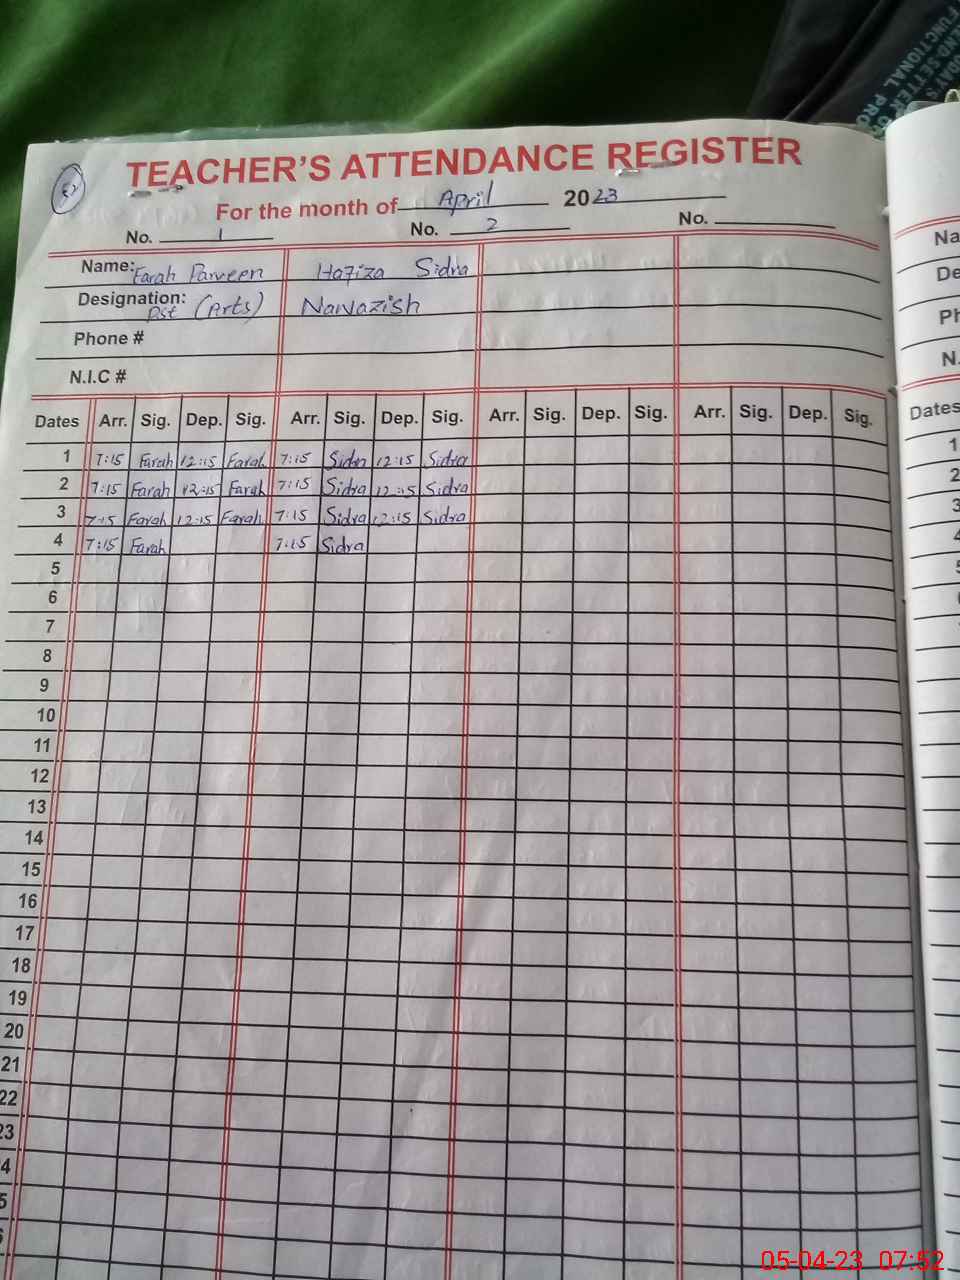 52
TEACHER'S ATTENDANCE REGISTER
For the month of April 2023
No. 1 No. 2 No.
Name: Farah Parveen Hafiza Sidra
Designation: Pst (Arts) Nawazish
Phone #
N.I.C #
Dates Arr. Sig. Dep. Sig. Arr. Sig. Dep. Sig. Arr. Sig. Dep. Sig. Arr. Sig. Dep. Sig.
1 7:15 Farah 12:15 Farah 7:15 Sidra 12:15 Sidra
2 7:15 Farah 12:15 Farah 7:15 Sidra 12:15 Sidra
3 7:15 Farah 12:15 Farah 7:15 Sidra 12:15 Sidra
4 7:15 Farah 7:15 Sidra
5
6
7
8
9
10
11
12
13
14
15
16
17
18
19
20
21
22
23
4
5
Na
De
Ph
N.
Dates
1
2
3
4
5
FUNCTIONAL PRO
05-04-23 07:52